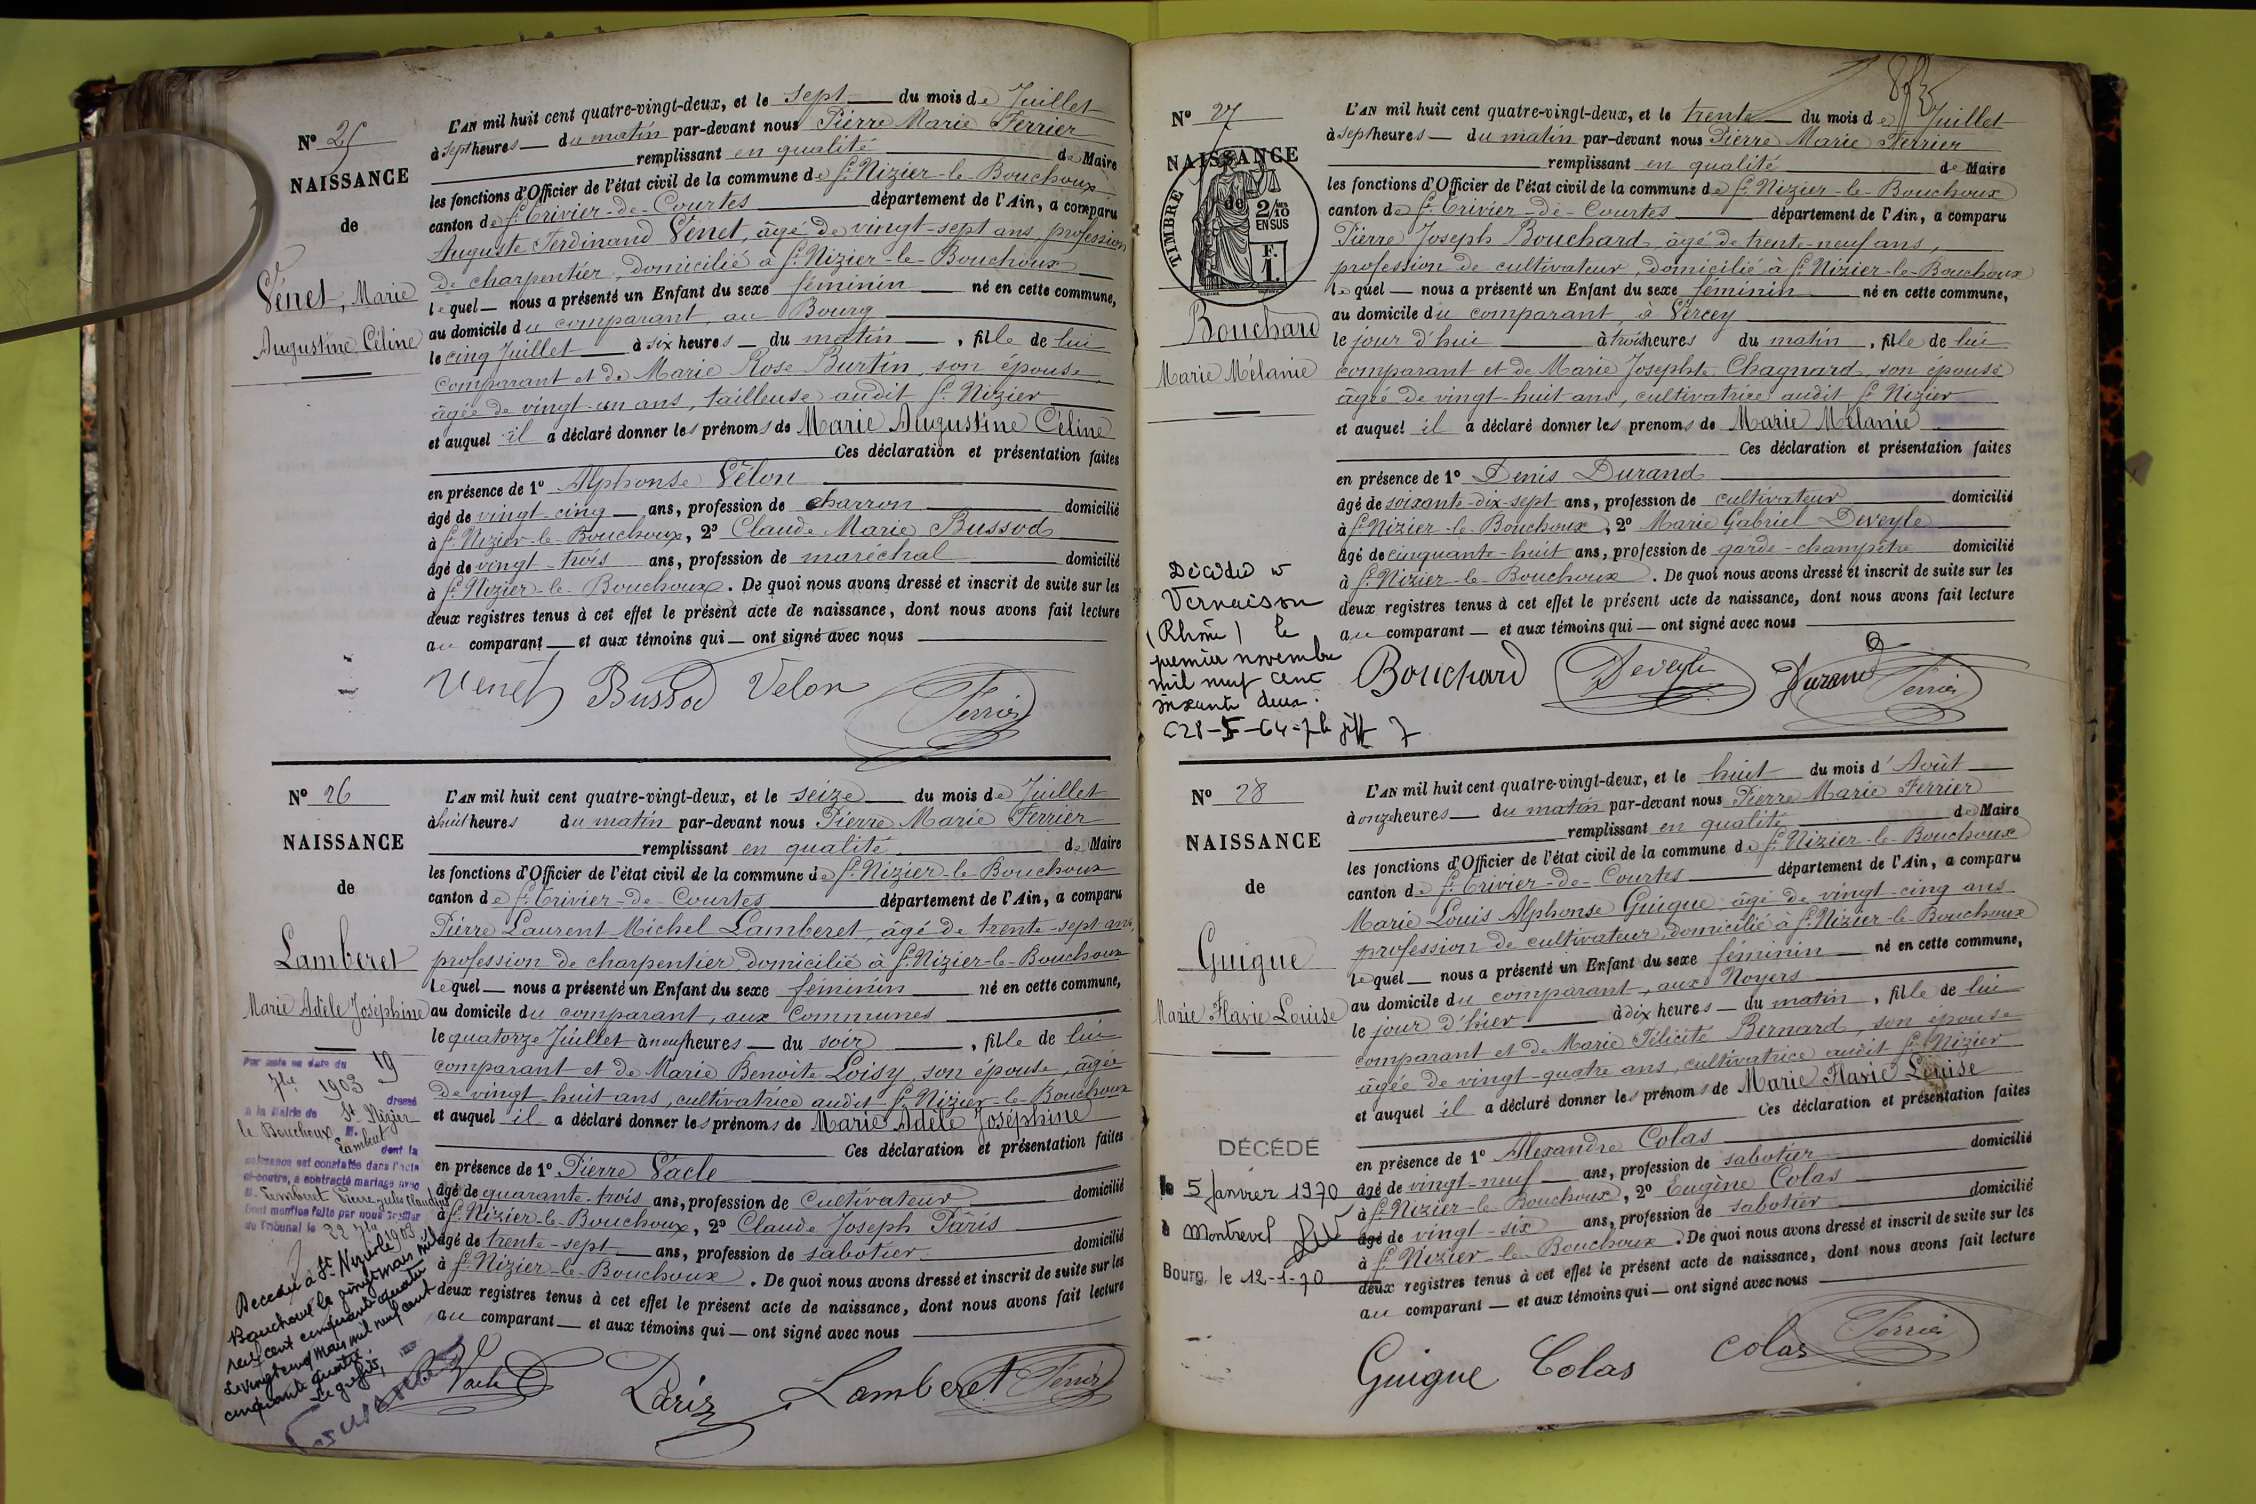 Nº 25
NAISSANCE
de
Vénet, Marie
Augustine Céline
L'AN mil huit cent quatre-vingt-deux, et le sept du mois de Juillet
à sept heures du matin par-devant nous Pierre Marie Ferrier
remplissant en qualité de Maire
les fonctions d'Officier de l'état civil de la commune de St Nizier-le-Bouchoux
canton de St Trivier-de-Courtes département de l'Ain, a comparu
Auguste Ferdinand Vénet, âgé de vingt-sept ans, profession
de charpentier, domicilié à St Nizier-le-Bouchoux
lequel nous a présenté un Enfant du sexe féminin né en cette commune,
au domicile du comparant, au Bourg
le cinq Juillet à six heures du matin, fille de lui
comparant et de Marie Rose Burtin, son épouse,
âgée de vingt-un ans, tailleuse audit St Nizier
et auquel il a déclaré donner les prénoms de Marie Augustine Céline
Ces déclaration et présentation faites
en présence de 1º Alphonse Vélon
âgé de vingt-cinq ans, profession de charron domicilié
à St Nizier-le-Bouchoux, 2º Claude Marie Bussod
âgé de vingt-trois ans, profession de maréchal domicilié
à St Nizier-le-Bouchoux. De quoi nous avons dressé et inscrit de suite sur les
deux registres tenus à cet effet le présent acte de naissance, dont nous avons fait lecture
au comparant et aux témoins qui ont signé avec nous
Venet Bussod Velon Ferrier
Nº 26
NAISSANCE
de
Lamberet
Marie Adèle Joséphine
Par acte en date du 19
7bre 1903 dressé
à la Mairie de St Nizier
le Bouchoux M.
Lamberet dont la
naissance est constatée dans l'acte
ci-contre, a contracté mariage avec
M. Lamberet Pierre Jules Claudius
Dont mention faite par nous Greffier
du Tribunal le 22 7bre 1903
Décédée à St Nizier le
Bouchoux le vingt mars mil
neuf cent cinquante quatre
Le vingt cinq mars mil neuf cent
cinquante quatre
Le greffier,
L'AN mil huit cent quatre-vingt-deux, et le seize du mois de Juillet
à huit heures du matin par-devant nous Pierre Marie Ferrier
remplissant en qualité de Maire
les fonctions d'Officier de l'état civil de la commune de St Nizier-le-Bouchoux
canton de St Trivier-de-Courtes département de l'Ain, a comparu
Pierre Laurent Michel Lamberet, âgé de trente-sept ans,
profession de charpentier, domicilié à St Nizier-le-Bouchoux
lequel nous a présenté un Enfant du sexe féminin né en cette commune,
au domicile du comparant, aux Communes
le quatorze Juillet à neuf heures du soir, fille de lui
comparant et de Marie Benoite Loisy, son épouse, âgée
de vingt-huit ans, cultivatrice audit St Nizier-le-Bouchoux
et auquel il a déclaré donner les prénoms de Marie Adèle Joséphine
Ces déclaration et présentation faites
en présence de 1º Pierre Vacle
âgé de quarante-trois ans, profession de cultivateur domicilié
à St Nizier-le-Bouchoux, 2º Claude Joseph Pâris
âgé de trente-sept ans, profession de sabotier domicilié
à St Nizier-le-Bouchoux. De quoi nous avons dressé et inscrit de suite sur les
deux registres tenus à cet effet le présent acte de naissance, dont nous avons fait lecture
au comparant et aux témoins qui ont signé avec nous
Vacle Paris Lamberet Ferrier
Nº 27
NAISSANCE
de
TIMBRE
2/10
EN SUS
F.
1.
Bouchard
Marie Mélanie
Décédée à
Vernaison
(Rhône) le
premier novembre
mil neuf cent
soixante deux.
L'AN mil huit cent quatre-vingt-deux, et le trente du mois de Juillet
à sept heures du matin par-devant nous Pierre Marie Ferrier
remplissant en qualité de Maire
les fonctions d'Officier de l'état civil de la commune de St Nizier-le-Bouchoux
canton de St Trivier-de-Courtes département de l'Ain, a comparu
Pierre Joseph Bouchard, âgé de trente-neuf ans,
profession de cultivateur, domicilié à St Nizier-le-Bouchoux
lequel nous a présenté un Enfant du sexe féminin né en cette commune,
au domicile du comparant, à Vercey
le jour d'hui à trois heures du matin, fille de lui
comparant et de Marie Josephte Chagnard, son épouse
âgée de vingt-huit ans, cultivatrice audit St Nizier
et auquel il a déclaré donner les prénoms de Marie Mélanie
Ces déclaration et présentation faites
en présence de 1º Denis Durand
âgé de soixante-dix-sept ans, profession de cultivateur domicilié
à St Nizier-le-Bouchoux, 2º Marie Gabriel Deveyle
âgé de cinquante-huit ans, profession de garde-champêtre domicilié
à St Nizier-le-Bouchoux. De quoi nous avons dressé et inscrit de suite sur les
deux registres tenus à cet effet le présent acte de naissance, dont nous avons fait lecture
au comparant et aux témoins qui ont signé avec nous
Bouchard Deveyle Durand Ferrier
Nº 28
NAISSANCE
de
Guigue
Marie Flavie Louise
DÉCÉDÉ
le 5 Janvier 1970
à Montrevel
Bourg, le 12-1-70
L'AN mil huit cent quatre-vingt-deux, et le huit du mois d'Août
à onze heures du matin par-devant nous Pierre Marie Ferrier
remplissant en qualité de Maire
les fonctions d'Officier de l'état civil de la commune de St Nizier-le-Bouchoux
canton de St Trivier-de-Courtes département de l'Ain, a comparu
Marie Louis Alphonse Guigue, âgé de vingt-cinq ans
profession de cultivateur, domicilié à St Nizier-le-Bouchoux
lequel nous a présenté un Enfant du sexe féminin né en cette commune,
au domicile du comparant, aux Noyers
le jour d'hier à dix heures du matin, fille de lui
comparant et de Marie Félicité Bernard, son épouse
âgée de vingt-quatre ans, cultivatrice audit St Nizier
et auquel il a déclaré donner les prénoms de Marie Flavie Louise
Ces déclaration et présentation faites
en présence de 1º Alexandre Colas
âgé de vingt-neuf ans, profession de sabotier domicilié
à St Nizier-le-Bouchoux, 2º Eugène Colas
âgé de vingt-six ans, profession de sabotier domicilié
à St Nizier-le-Bouchoux. De quoi nous avons dressé et inscrit de suite sur les
deux registres tenus à cet effet le présent acte de naissance, dont nous avons fait lecture
au comparant et aux témoins qui ont signé avec nous
Guigue Colas Colas Ferrier